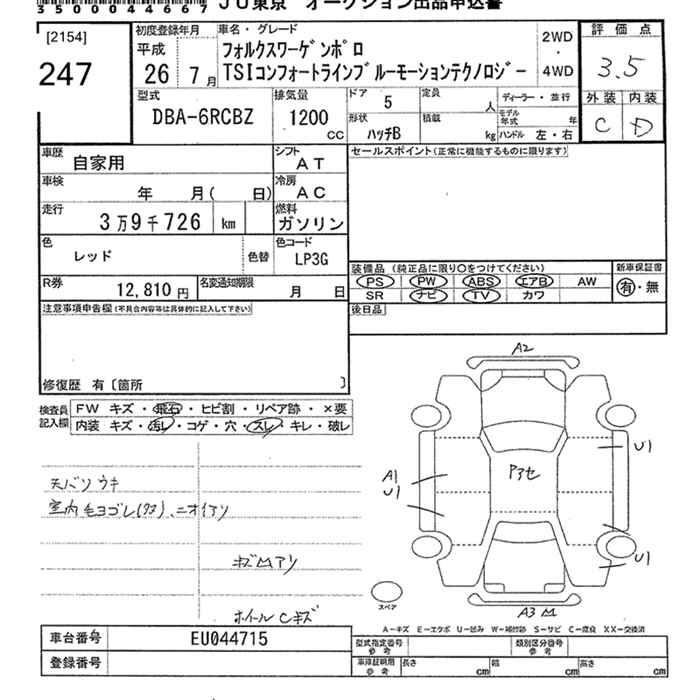 35000044667 JU東京 オークション出品申込書
[2154]
247
初度登録年月
平成
26 7月
車名・グレード
フォルクスワーゲンポロ
TSIコンフォートラインブルーモーションテクノロジー
2WD
・
4WD
評価点
3.5
外装 内装
C D
型式
DBA-6RCBZ
排気量
1200
CC
ドア 5
定員 人
ディーラー・並行
形状
ハッチB
積載 kg
モデル年式 年
ハンドル 左・右
車歴 自家用
シフト AT
セールスポイント(正常に機能するものに限ります)
車検 年 月( 日)
冷房 AC
走行 3万9千726 km
燃料 ガソリン
色 レッド
色替
色コード LP3G
装備品(純正品に限り○をつけてください)
新車保証書
PS PW ABS エアB AW
有・無
SR ナビ TV カワ
R券 12,810円
名変通知期限 月 日
後日品
注意事項申告欄(不具合内容等は具体的に記入して下さい)
修復歴 有〔箇所 〕
検査員記入欄
FW キズ・飛石・ヒビ割・リペア跡・×要
内装 キズ・汚レ・コゲ・穴・スレ・キレ・破レ
天バリウキ
室内毛ヨゴレ(タヌ)、ニオイアリ
キズMアリ
ホイールCキズ
A2
U1
A1
U1
Pアセ
U1
A3 M
スペア
A-キズ E-エクボ U-凹み W-補修跡 S-サビ C-腐食 XX-交換済
車台番号 EU044715
登録番号
型式指定番号 参考
類別区分番号 参考
車庫証明用 参考
長さ cm 幅 cm 高さ cm